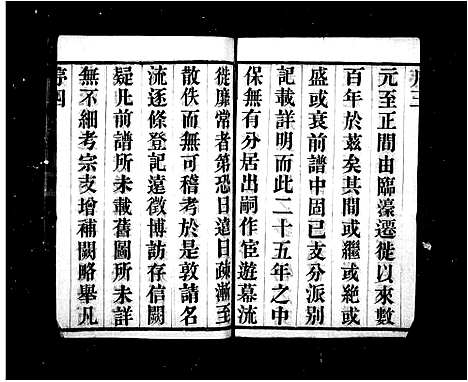 序三
元至正間由臨濠遷徙以來數
百年於茲矣其間或繼或絶或
盛或衰前譜中固已支分派别
記載詳明而此二十五年之中
保無有分居出嗣作宦遊幕流
徙靡常者第恐日遠日疎漸至
散佚而無可稽考於是敦請名
流逐條登記遠徵博訪存信闕
疑凡前譜所未載舊圖所未詳
無不細考宗支增補闕略舉凡
序四